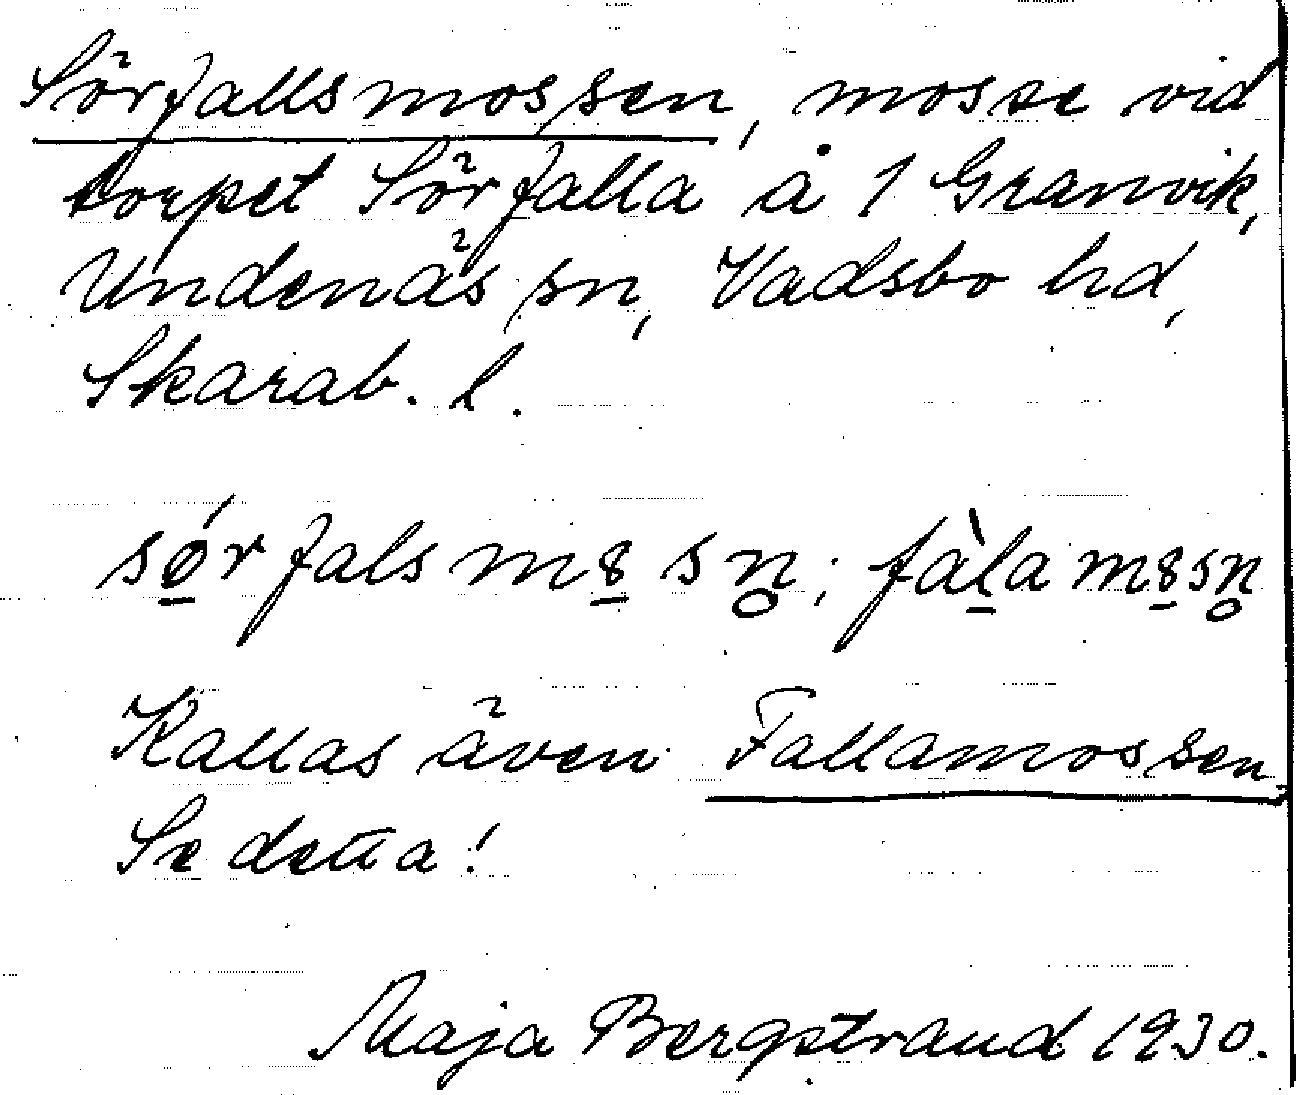 Sörfallsmossen, mosse vid
torpet Sörfalla å 1 Granvik,
Undenäs sn, Vadsbo hd,
Skarab. l.
sǿ̱rfalsm8̱sn̥; fàḻam8̱sn̥
Kallas även Fallamossen.
Se detta!
Maja Bergstrand 1930.